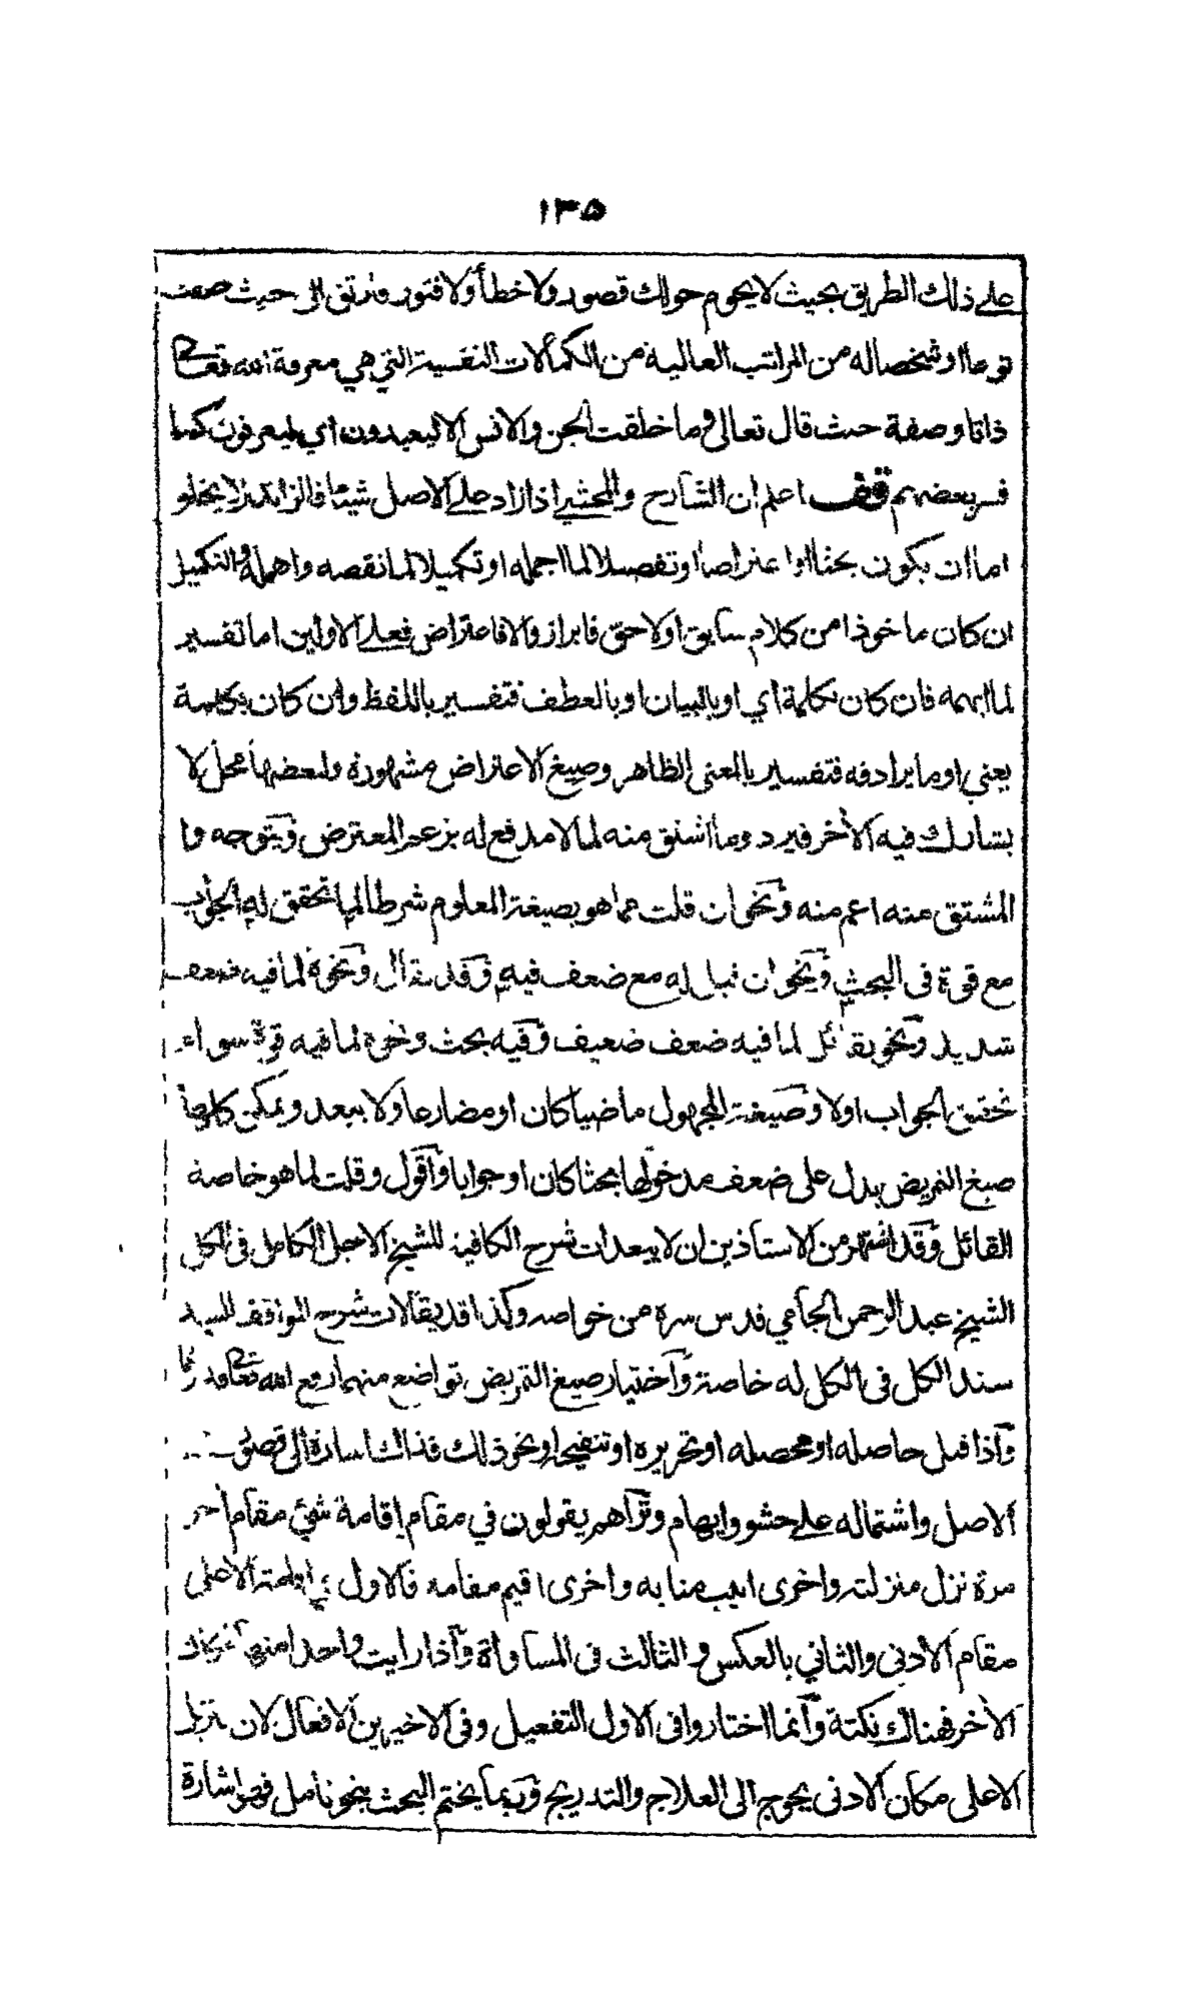 ١٣٥
على ذلك الطريق بحيث لا يحوم حوالك قصور ولا خطأ ولا فتور وترتق الى حيث
نوعا او شخصا له من المراتب العالية من الكمالات النفسية التي هي معرفة الله تعالى
ذاتا وصفة حيث قال تعالى وما خلقت الجن والانس الا ليعبدون اي ليعرفون كما
فسر بعضهم قف اعلم ان الشارح والمحشي اذا زاد على الاصل شيئا فالزائد لا يخلو
اما ان يكون بحثا او اعتراضا او تفصيلا لما اجمله او تكميلا لما نقصه واهمله والتكميل
ان كان ماخوذا من كلام سابق او لاحق فابراز والا فاعتراض فعلى الاولين اما تفسير
لما ابهمه فان كان بكلمة اي او بالبيان او بالعطف فتفسير باللفظ وان كان بكلمة
يعني او ما يرادفه فتفسير بالمعنى الظاهر وصيغ الاعتراض مشهورة ولبعضها محل لا
يشارك فيه الآخر فيرد وما اشتق منه لما لا مدفع له بزعم المعترض ويتوجه وما
المشتق منه اعم منه ونحو ان قلت مما هو بصيغة المعلوم شرطا لما تحقق له الجواب
مع قوة في البحث ونحو ان قيل له مع ضعف فيه وقد يقال ونحوه لما فيه ضعف
شديد ونحو يقائل لما فيه ضعف ضعيف وفيه بحث ونحوه لما فيه قوة سواء
تحقق الجواب اولا وصيغة المجهول ماضيا كان او مضارعا ولا يبعد ويمكن كلها
صيغ التمريض يدل على ضعف مدخولها بحثا كان او جوابا واقول وقلت لما هو خاصة
القائل وقد اشتهر من الاستاذين ان لا يبعد ات شرح الكافية للشيخ الاجل الكامل في الكل
الشيخ عبد الرحمن الجامي قدس سره من خواصه وكذا قد يقالات شرح المواقف للسيد
سند الكل في الكل له خاصة واختيار صيغ التمريض تواضع منهما رفع الله تعالى
واذا قيل حاصله او محصله او تحريره او تنقيحه او نحو ذلك فذاك اشارة الى قصور
الاصل واشتماله على حشو وابهام وتراهم يقولون في مقام اقامة شيء مقام آخر
مرة نزل منزلته واخرى انيب منابه واخرى اقيم مقامه فالاول في اقامة الاعلى
مقام الادنى والثاني بالعكس والثالث في المساواة واذا رايت واحدا منها
الآخر فهناك نكتة وانما اختاروا في الاول التفعيل وفي الاخيرين الافعال لان تنزيل
الاعلى مكان الادنى يحوج الى العلاج والتدريج وربما يختم البحث بنحو تأمل فهو اشارة